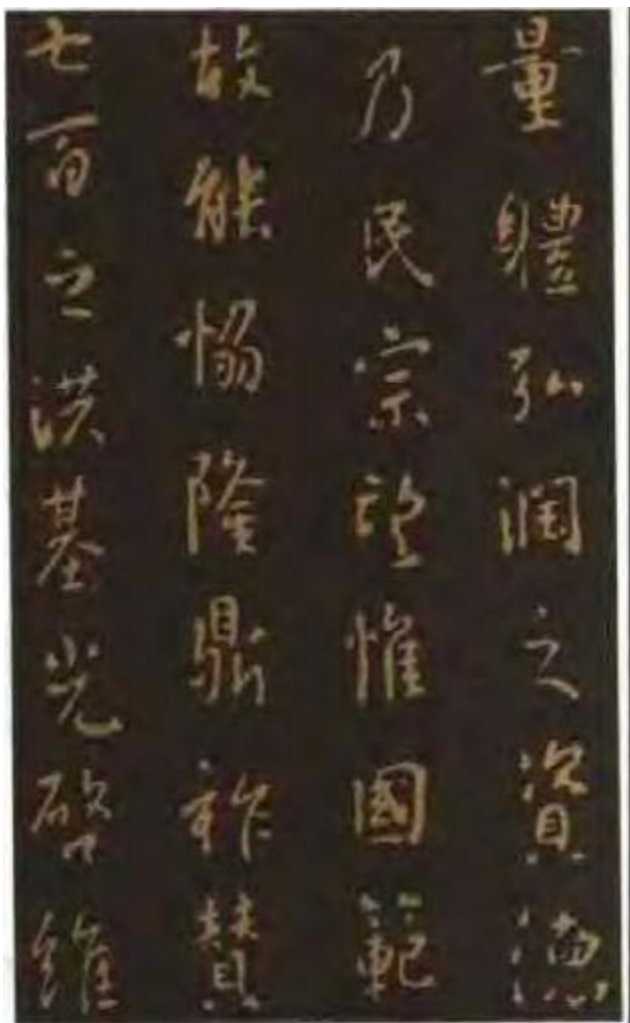 量體弘潤之資德
乃民宗望惟國範
故能恊隆鼎祚贊
七百之洪基光啓維